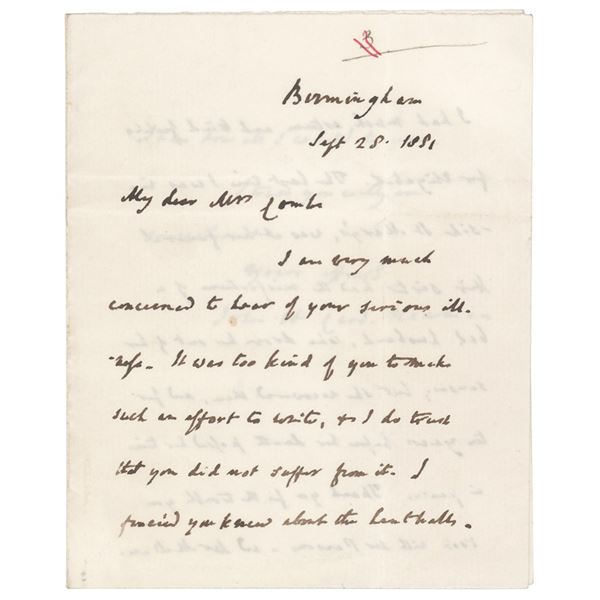 Birmingham
Sept 28. 1881
My dear Mrs Combe
I am very much
concerned to hear of your serious ill-
-ness. It was too kind of you to make
such an effort to write, & I do trust
that you did not suffer from it. I
fancied you knew about the